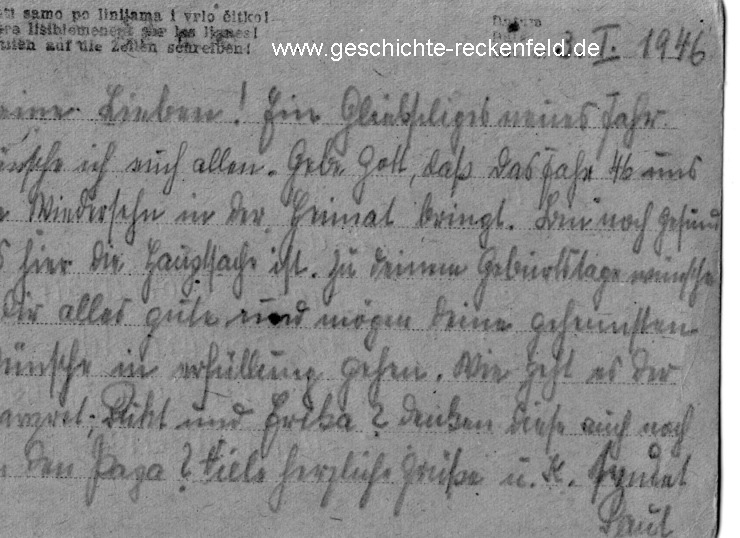 samo po linijama i vrlo čitko!
lisiblement sur les lignes!
auf die Zeilen schreiben!
Datum
www.geschichte-reckenfeld.de
3. I. 1946
eine Lieben! Ein Glückseliges neues Jahr
ünsche ich euch allen. Gebe Gott, daß das Jahr 46 uns
Wiedersehn in der Heimat bringt. Bin noch gesund
s hier die Hauptsache ist. Zu deinem Geburtstage wünsche
Dir alles gute und mögen deine geheimsten
Wünsche in erfüllung gehen. Wie geht es der
und Erika? denken diese auch noch
den Papa? Viele herzliche Grüße u. K. sendet
Paul